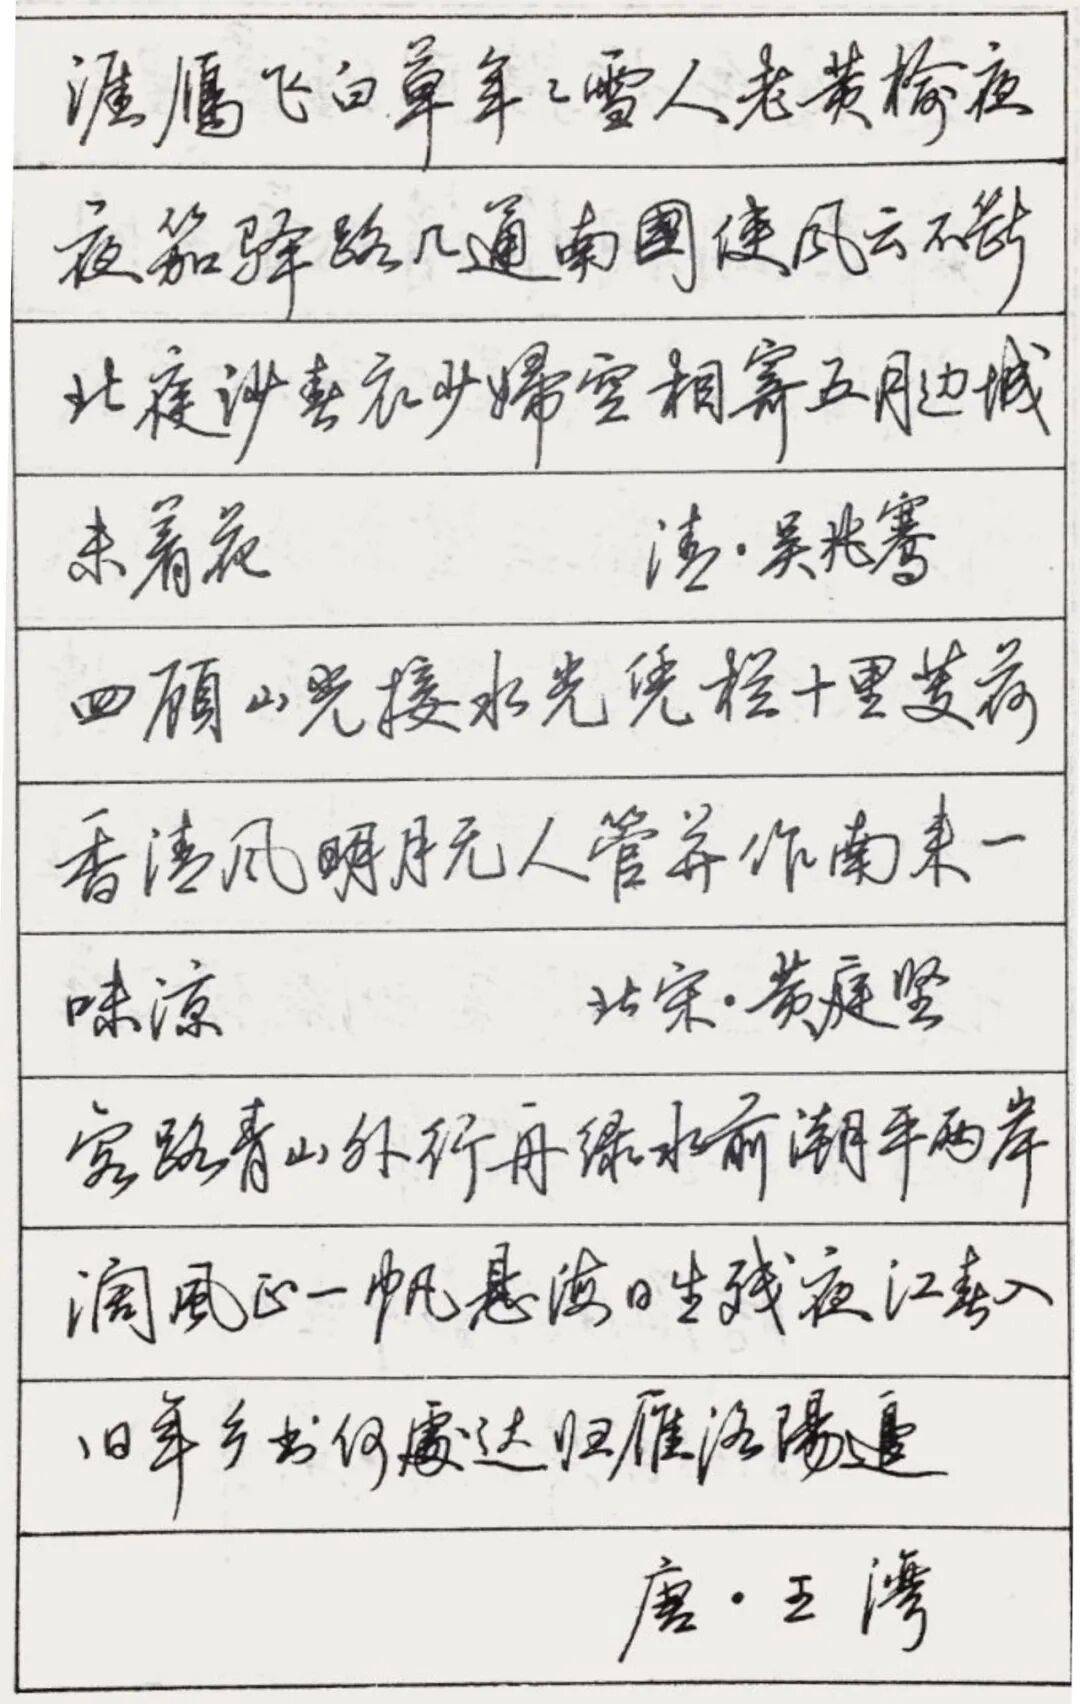 涯鴈飞白草年々雪人老黄榆夜
夜笳驿路几通南國使风云不断
北庭沙春衣少婦空相寄五月边城
未着花 清·吴兆骞
四顾山光接水光凭栏十里芰荷
香清风明月无人管并作南来一
味凉 北宋·黄庭坚
客路青山外行舟绿水前潮平两岸
阔風正一帆悬海日生残夜江春入
旧年乡书何處达归雁洛陽邊
唐·王湾